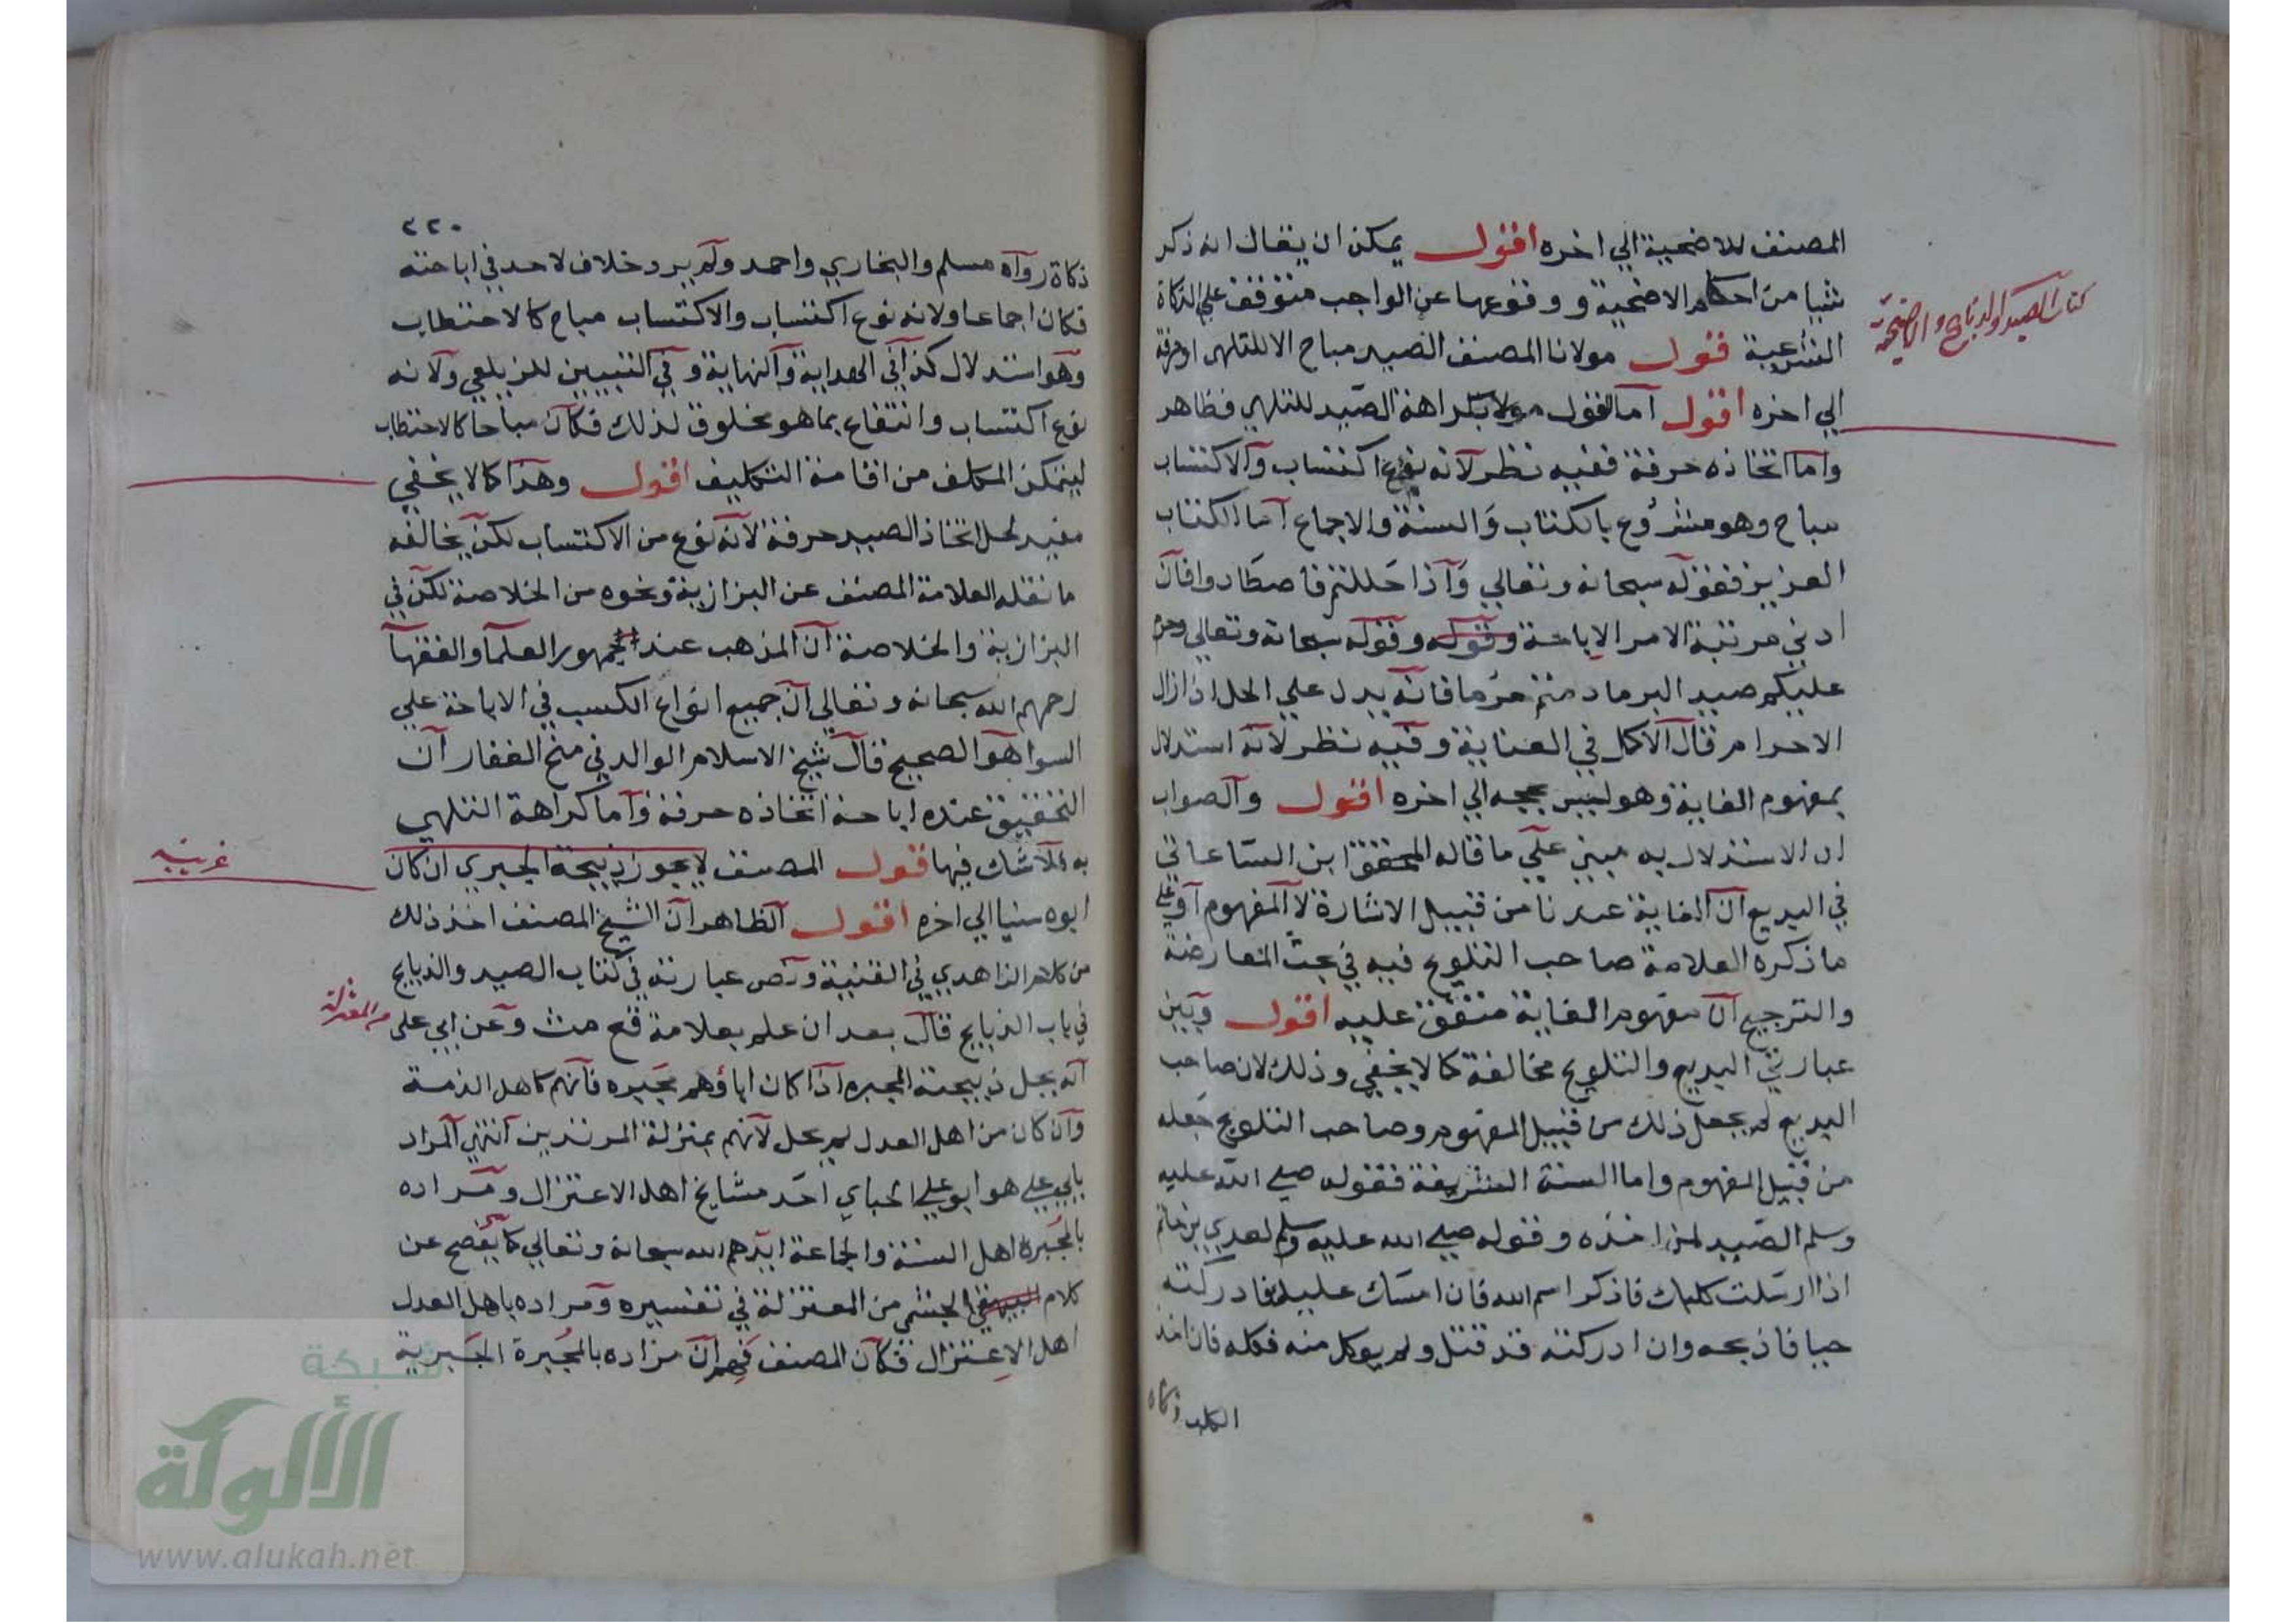 المصنف للاضحية الي اخره اقول يمكن ان يقال انه ذكر
شيا من احكام الاضحية و وقوعها عن الواجب متوقف علي الذكاة
الشرعية قول مولانا المصنف الصيد مباح الا للتلهي او حرفة
الي اخره اقول اما القول بكراهة الصيد للتلهي فظاهر
واما اتخاذه حرفة ففيه نظر لانه نوع اكتساب والاكتساب
مباح وهو مشروع بالكتاب والسنة والاجماع اما الكتاب
العزيز فقوله سبحانه وتعالي واذا حللتم فاصطادوا فان
ادني مرتبة الامر الاباحة وقوله وقوله سبحانه وتعالي وحرم
عليكم صيد البر ما دمتم حرما فانه يدل علي الحل اذا زال
الاحرام قال الاكمل في العناية وفيه نظر لانه استدلال
بمفهوم الغاية وهو ليس بحجه الي اخره اقول والصواب
ان الاستدلال به مبني علي ما قاله المحقق ابن الساعاتي
في البديع ان الغاية عندنا من قبيل الاشارة لا المفهوم او علي
ما ذكره العلامة صاحب التلويح فيه في بحث المعارضة
والترجيح ان مفهوم الغاية متفق عليه اقول وبين
عبارتي البديع والتلويح مخالفة كما لا يخفي وذلك لان صاحب
البديع لم يجعل ذلك من قبيل المفهوم وصاحب التلويح جعله
من قبيل المفهوم واما السنة الشريفة فقوله صلي الله عليه
وسلم الصيد لمن اخذه وقوله صلي الله عليه وسلم لعدي بن حاتم
اذا ارسلت كلبك فاذكر اسم الله فان امسك عليك فادركته
حيا فاذبحه وان ادركته قد قتل ولم يوكل منه فكله فان اخذ
الكلب ذكاه
كتاب الصيد والذبايح والاضحية
٢٢٠
ذكاة رواه مسلم والبخاري واحمد ولم يرد خلاف لاحد في اباحته
فكان اجماعا ولانه نوع اكتساب والاكتساب مباح كالاحتطاب
وهو استدلال كذا في الهداية والنهاية وفي التبيين للزيلعي ولانه
نوع اكتساب وانتفاع بما هو مخلوق لذلك فكان مباحا كالاحتطاب
ليتمكن المكلف من اقامة التكليف اقول وهذا كما لا يخفي
مفيد لحل اتخاذ الصيد حرفة لانه نوع من الاكتساب لكن يخالفه
ما نقله العلامة المصنف عن البزازية ونحوه من الخلاصة لكن في
البزازية والخلاصة ان المذهب عند جمهور العلما والفقها
رحمهم الله سبحانه وتعالي ان جميع انواع الكسب في الاباحة علي
السوا هو الصحيح قال شيخ الاسلام الوالد في منح الغفار ان
التحقيق عنده اباحة اتخاذه حرفة واما كراهة التلهي
به فلا شك فيها قول المصنف لا يجوز ذبيحة الجبري ان كان
ابوه سنيا الي اخره اقول الظاهر ان الشيخ المصنف اخذ ذلك
من كلام الزاهدي في القنية ونص عبارته في كتاب الصيد والذبايح
في باب الذبايح قال بعد ان علم بعلامة قع مث وعن ابي علي
انه يحل ذبيحته المجبره اذا كان اباؤهم مجبره فانهم كاهل الذمة
وان كان من اهل العدل لم يحل لانهم بمنزلة المرتدين انتهي المراد
بابي علي هو ابو علي الجباي احد مشايخ اهل الاعتزال ومراده
بالمجبرة اهل السنة والجاعة ايدهم الله سبحانه وتعالي كما يفصح عن
كلام البيهقي الجشمي من المعتزلة في تفسيره ومراده باهل العدل
اهل الاعتزال فكان المصنف فهم ان مراده بالمجبرة الجبرية
غريبه
من المعتزلة
شبكة
الألوكة
www.alukah.net